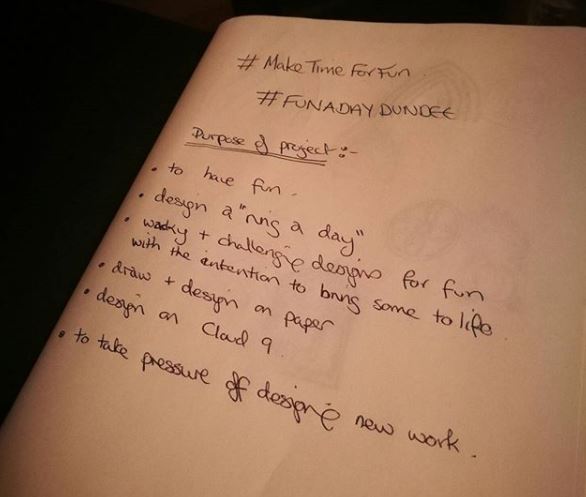 # Make Time For Fun
# FUNADAY DUNDEE
Purpose of project:-
• to have fun.
• design a "ring a day"
• wacky + challenging designs for fun
with the intention to bring some to life.
• draw + design on paper
• design on Cloud 9.
• to take pressure off designing new work.